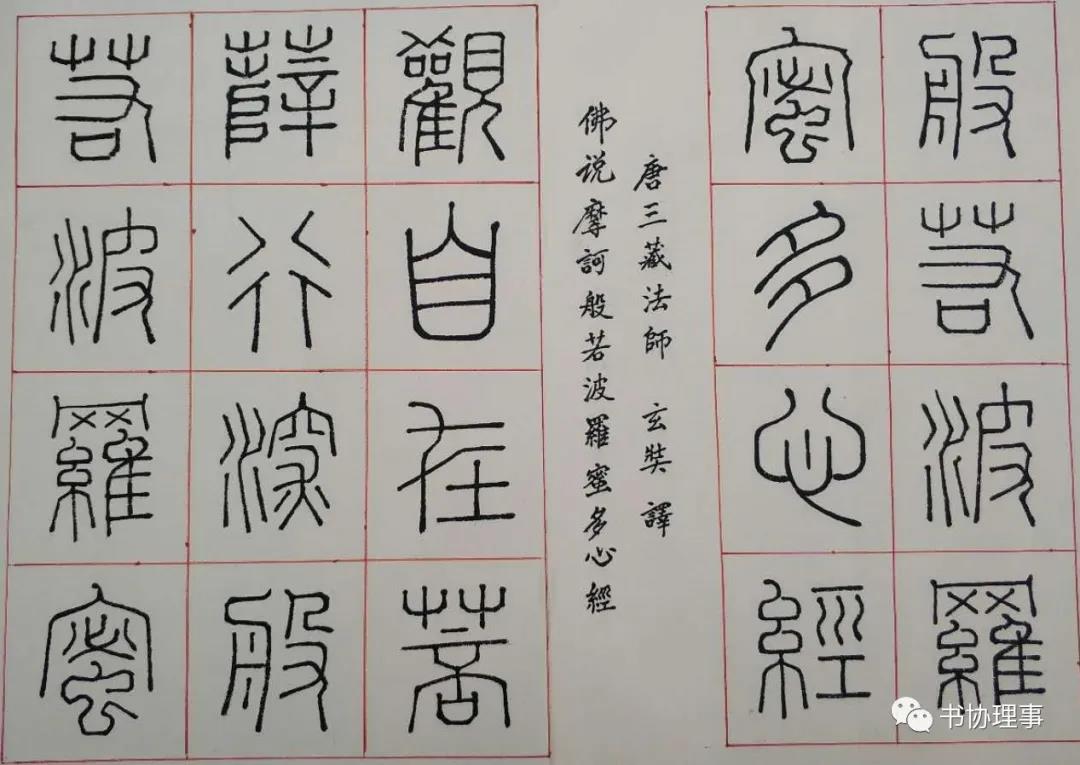 般若波羅
蜜多心經
唐三藏法師 玄奘譯
佛说摩訶般若波羅蜜多心經
觀自在菩
薩行深般
若波羅蜜
书协理事